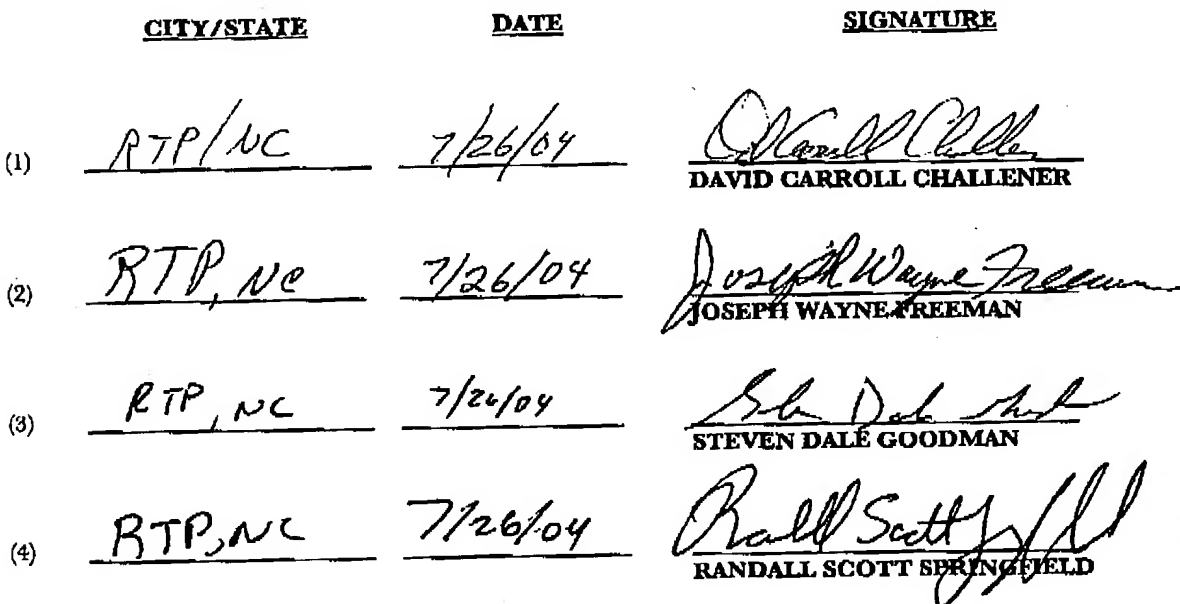 CITY/STATE DATE SIGNATURE
(1) RTP/NC 7/26/04 D Carroll Challen
DAVID CARROLL CHALLENER
(2) RTP, NC 7/26/04 Joseph Wayne Freeman
JOSEPH WAYNE FREEMAN
(3) RTP, NC 7/26/04 Dale
STEVEN DALE GOODMAN
(4) RTP, NC 7/26/04 Randall Scott
RANDALL SCOTT SPRINGFIELD